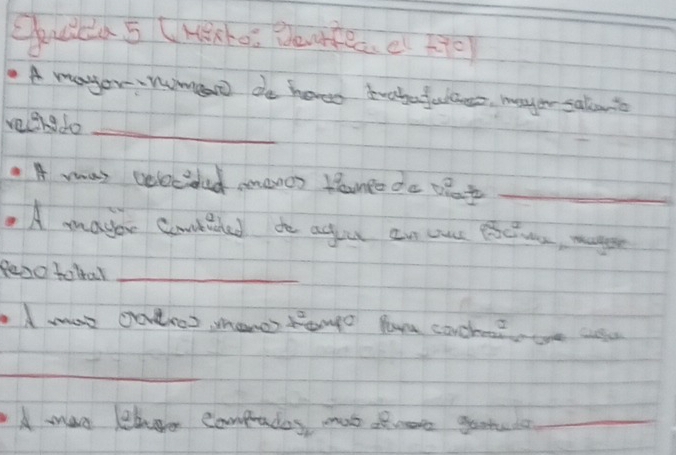 Ejercicio 5 (Mixto: Identifica el tipo)
• A mayor número de horas trabajadas, mayor salario
recibido ________
• A más velocidad menos tiempo de viaje ________
• A mayor cantidad de agua en una piscina, mayor
peso total ________
• A más obreros menos tiempo para construir una casa
________
• A más libros comprados, más dinero gastado ________